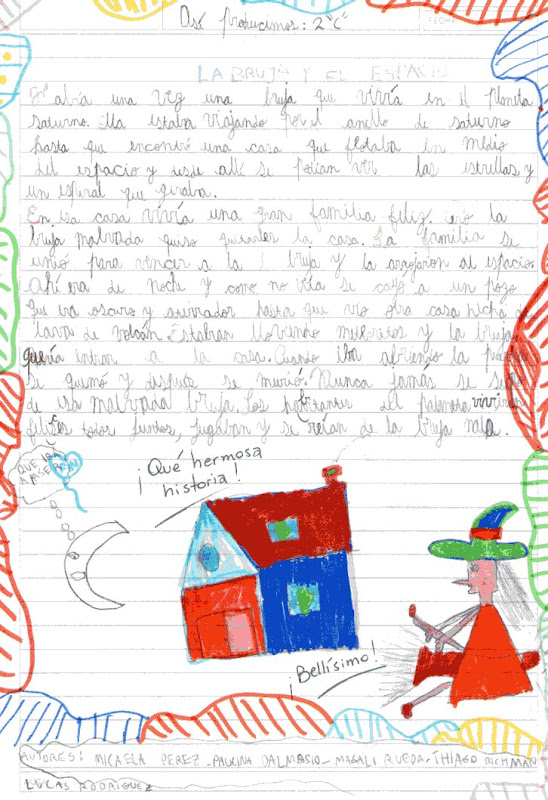 Así producimos: 2 "C"
FECHA
LA BRUJA Y EL ESPACIO
Había una vez una bruja que vivía en el planeta
saturno. Ella estaba viajando por el anillo de saturno
hasta que encontró una casa que flotaba en medio
del espacio y desde allí se podían ver las estrellas y
un espiral que giraba.
En esa casa vivía una gran familia feliz, pero la
bruja malvada quiso quitarles la casa. La familia se
unió para vencer a la bruja y la arrojaron al espacio.
Ahí era de noche y como no veía se cayó a un pozo
que era oscuro y aterrador hasta que vio otra casa hecha de
lava de volcán. Estaban lloviendo meteoritos y la bruja
quería entrar a la casa. Cuando iba abriendo la puerta
se quemó y después se murió. Nunca jamás se supo
de esa malvada bruja. Los habitantes del planeta vivieron
felices todos juntos, jugaban y se reían de la bruja mala.
QUE IRA
A PASAR
¡Qué hermosa
historia!
¡Bellísimo!
AUTORES: MICAELA PEREZ - PAULINA DALMASIO - MAGALI RUEDA - THIAGO RICHMAN
LUCAS RODRIGUEZ